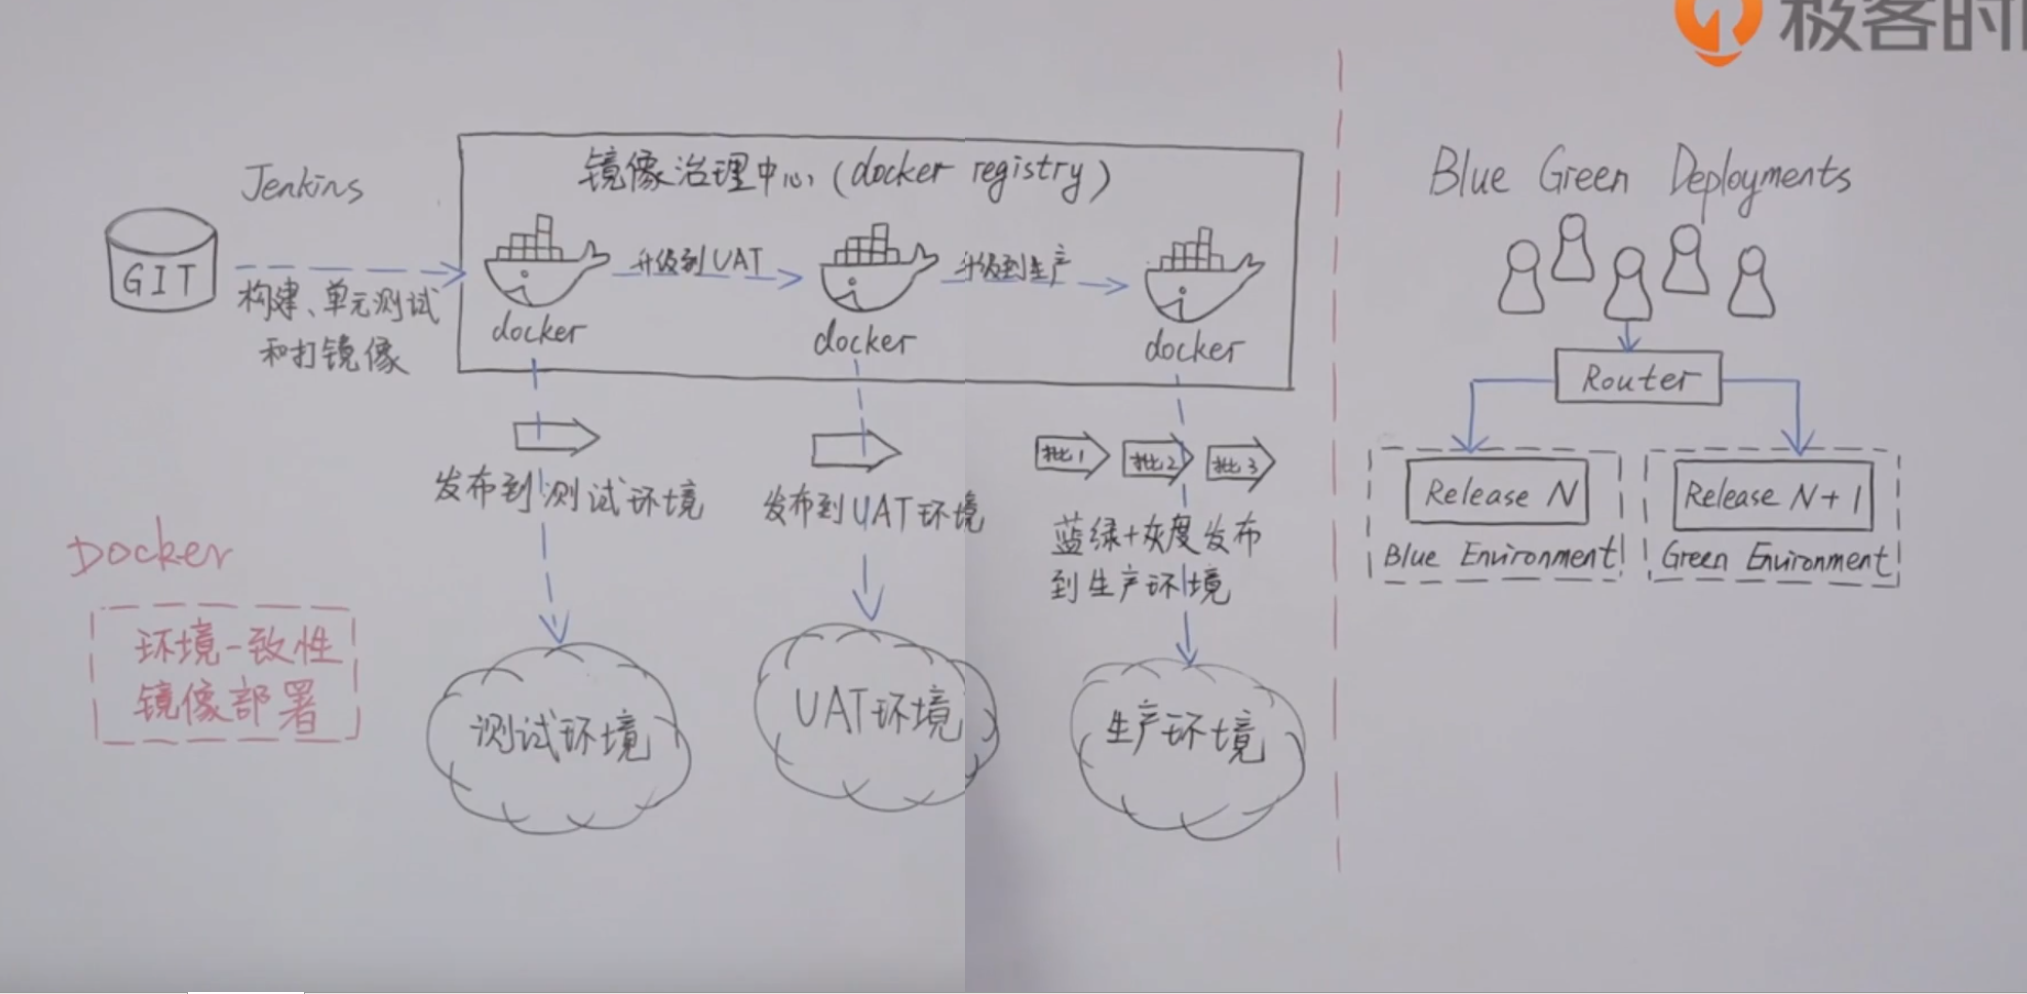 极客时
Jenkins
GIT
构建、单元测试
和打镜像
镜像治理中心(docker registry)
升级到UAT
升级到生产
docker
docker
docker
发布到测试环境
发布到UAT环境
批1
批2
批3
蓝绿+灰度发布
到生产环境
测试环境
UAT环境
生产环境
Docker
环境一致性
镜像部署
Blue Green Deployments
Router
Release N
Blue Environment
Release N+1
Green Environment